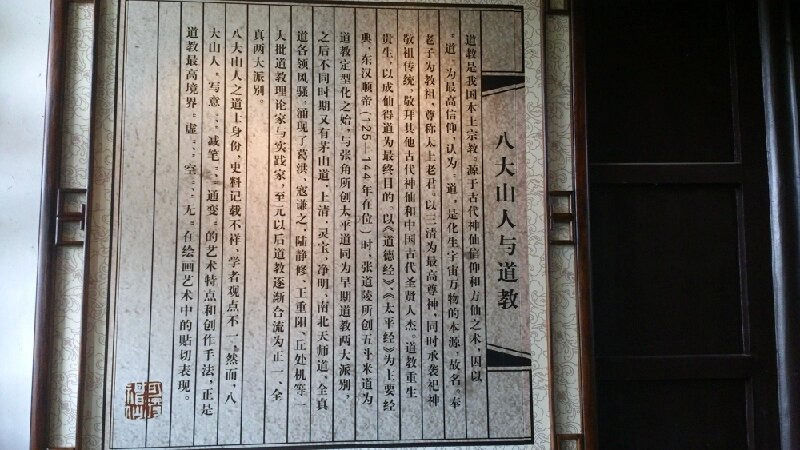 八大山人与道教
道教是我国本土宗教。源于古代神仙信仰和方仙之术，因以
“道”为最高信仰，认为“道”是化生宇宙万物的本源，故名。奉
老子为教祖，尊称太上老君。以三清为最高尊神，同时承袭祀神
敬祖传统，敬拜其他古代神仙和中国古代圣贤人杰。道教重生
贵生，以成仙得道为最终目的。以《道德经》、《太平经》为主要经
典，东汉顺帝（125—144年在位）时，张道陵所创五斗米道为
道教定型化之始，与张角所创太平道同为早期道教两大派别，
之后不同时期又有茅山道、上清、灵宝、净明、南北天师道、全真
道各领风骚。涌现了葛洪、寇谦之、陆静修、王重阳、丘处机等一
大批道教理论家与实践家，至元以后道教逐渐合流为正一、全
真两大派别。
八大山人之道士身份，史料记载不祥，学者观点不一，然而，八
大山人“写意”、“减笔”、“通变”的艺术特点和创作手法，正是
道教最高境界“虚”、“空”、“无”在绘画艺术中的贴切表现。